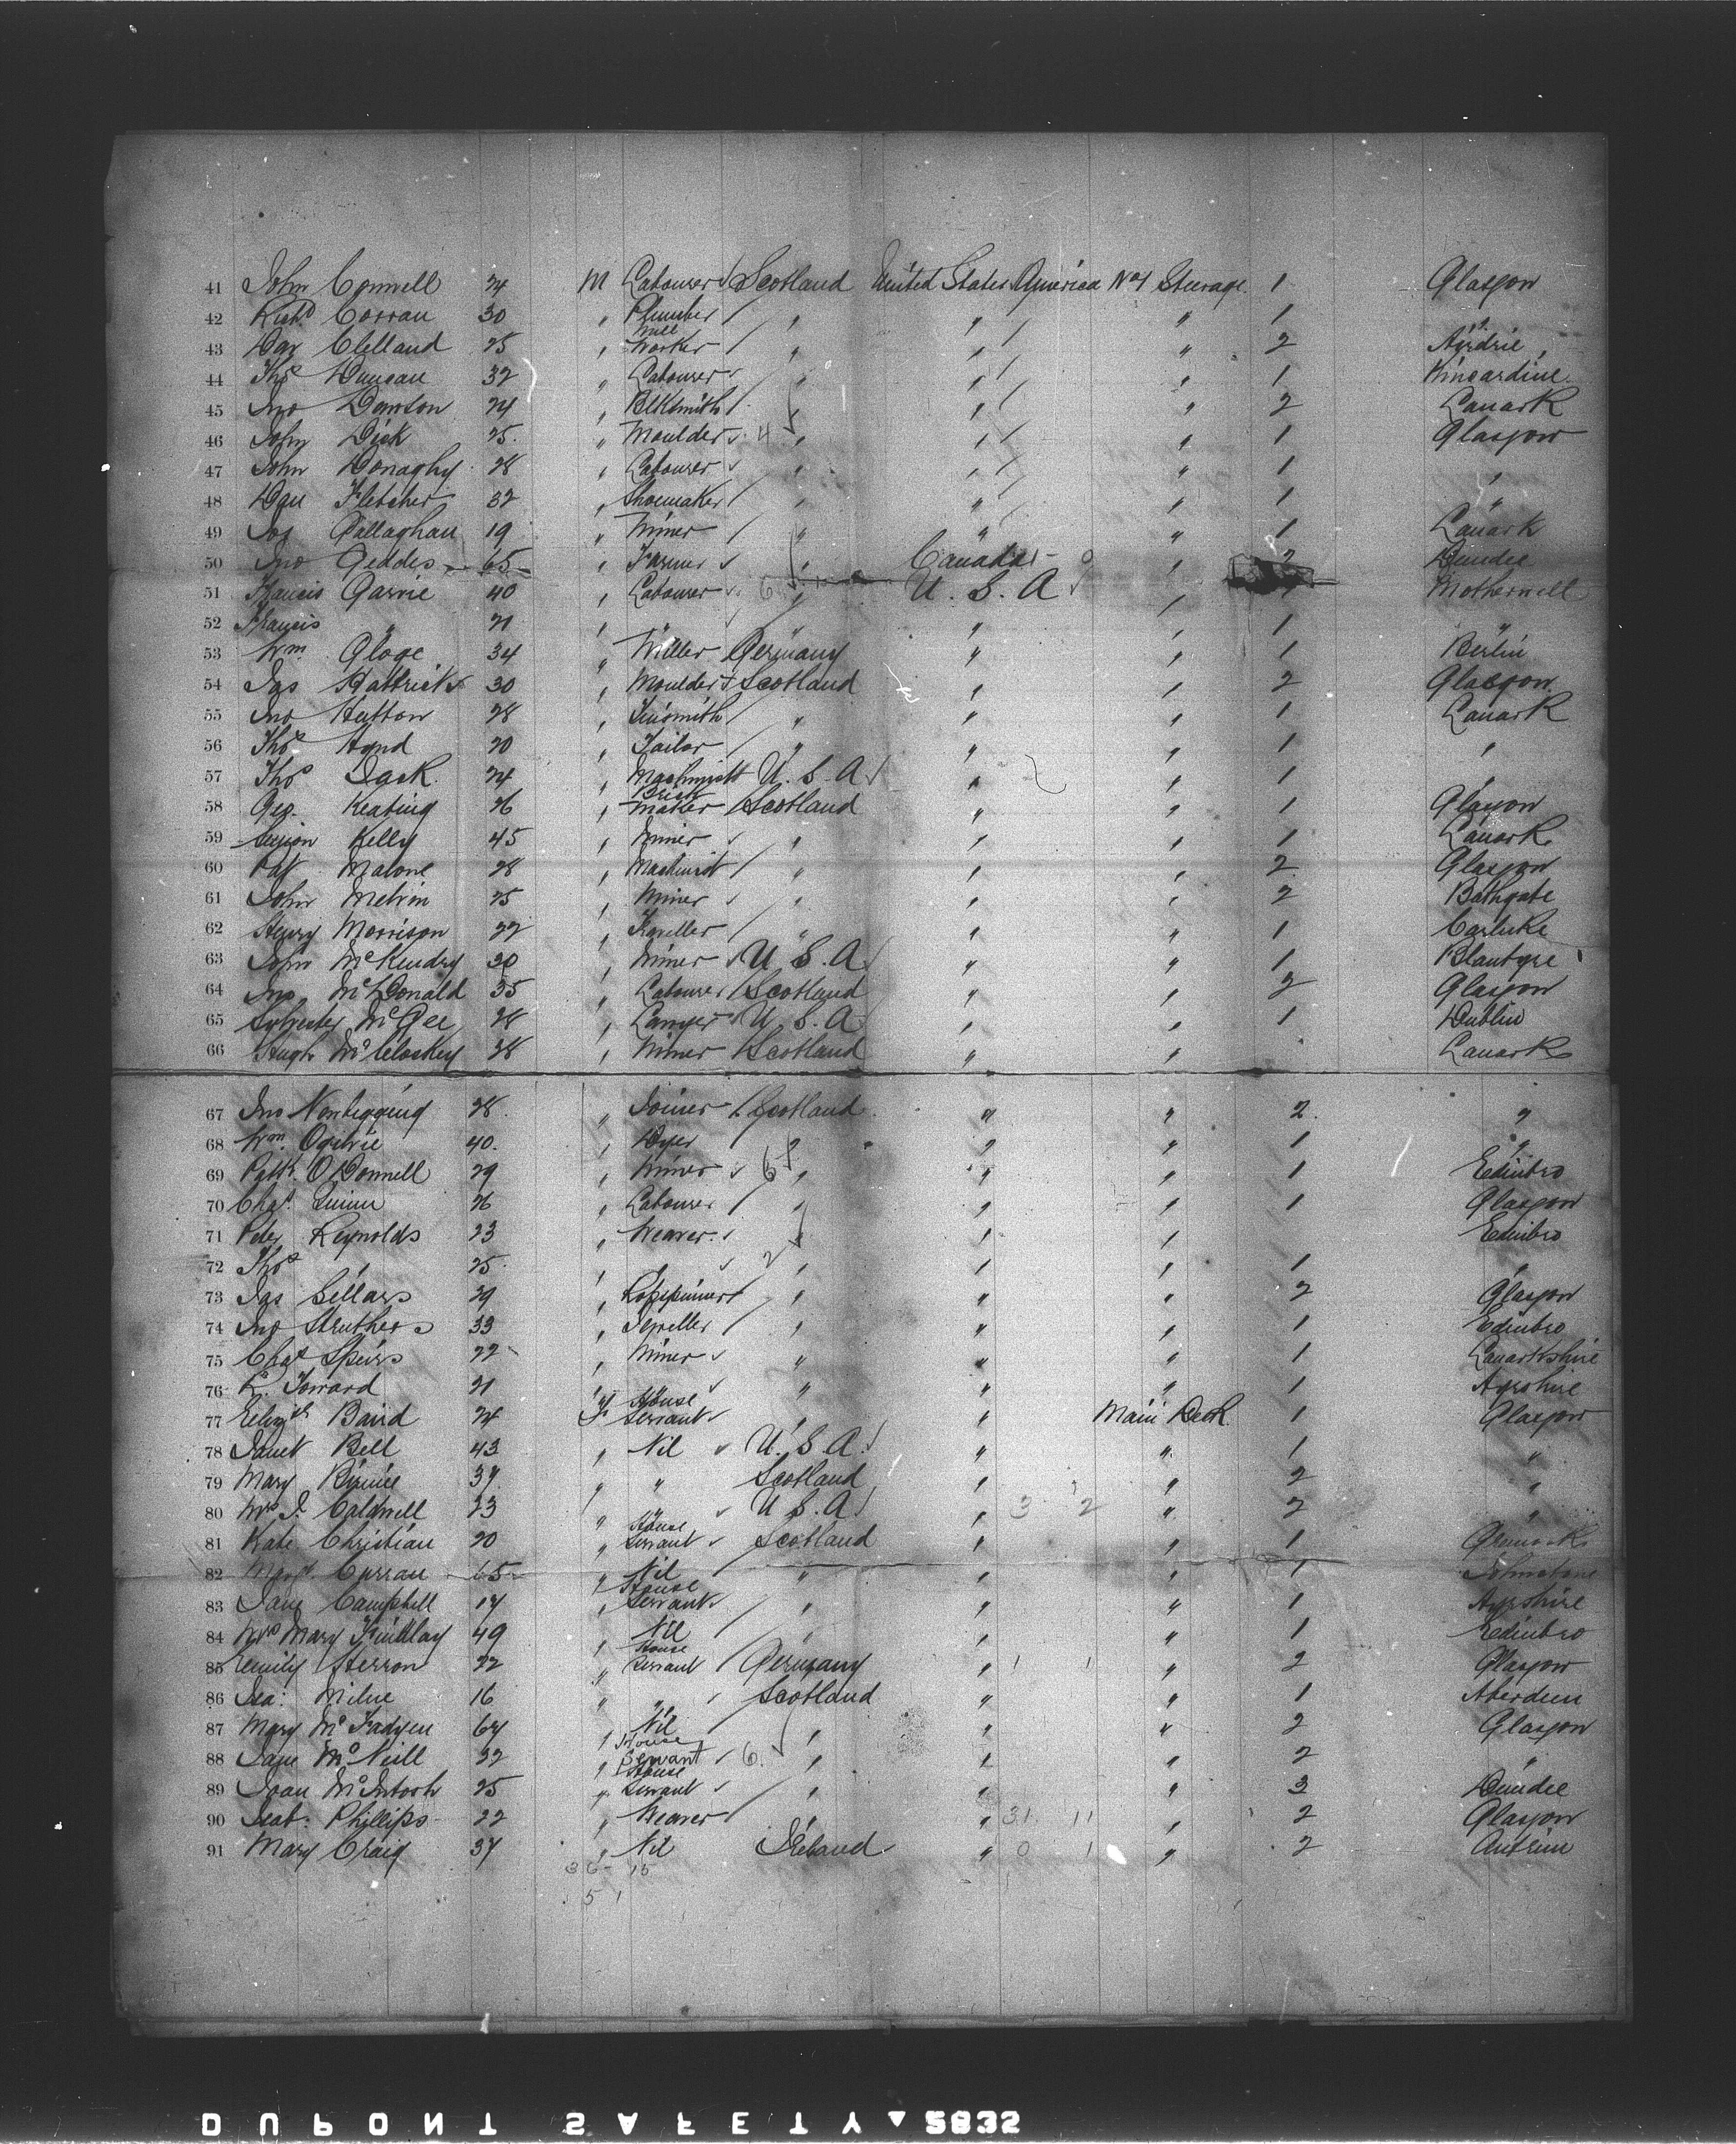 41 John Connell 24 M Labourer Scotland United States America No 1 Steerage 1 Glasgow
42 Richd Corrau 30 " Plumber " " " 1 "
43 Dav Clelland 25 " Mill Worker " " " 2 Airdrie
44 Thos Duncan 32 " Labourer " " " 1 Kincardine
45 Jno Dawson 24 " Blksmith " " " 2 Lanark
46 John Dick 25 " Moulder 4 " " " 1 Glasgow
47 John Donaghy 28 " Labourer " " " 1 "
48 Dan Fletcher 32 " Shoemaker " " " 1 "
49 Jas Gallaghan 19 " Miner " " " 1 Lanark
50 Jno Geddes 65 " Farmer " Canada " 2 Dundee
51 Francis Garvie 40 " Labourer 6 " U. S. A " 1 Motherwell
52 Francis " 21 " " " " " 1 "
53 Wm Gloge 34 " Miller Germany " " 1 Berlin
54 Jas Hattrick 30 " Moulder Scotland " " 2 Glasgow
55 Jno Hutton 28 " Tinsmith " " " 1 Lanark
56 Thos Hynd 20 " Tailor " " " 1 "
57 Thos Jack 24 " Machinist U. S. A " " 1 "
58 Geo. Keating 26 " Brick Maker Scotland " " 1 Glasgow
59 Simon Kelly 45 " Miner " " " 1 Lanark
60 Pat Malone 28 " Machinist " " " 2 Glasgow
61 John Melvin 25 " Miner " " " 2 Bathgate
62 Henry Morrison 22 " " " " 1 Carluke
63 John McKendry 30 " Miner U. S. A " " 1 Blantyre
64 Jno McDonald 35 " Labourer Scotland " " 2 Glasgow
65 Sylvester McGee 28 " Lawyer U. S. A " " 1 Dublin
66 Hugh McCloskey 38 " Miner Scotland " " Lanark
67 Jno Newbigging 28 " Joiner Scotland " " 2 "
68 Wm Ogilvie 40 " Dyer " " " 1 "
69 Patk. O'Donnell 29 " Miner 6 " " " 1 Edinbro
70 Chas. Quinn 26 " Labourer " " " 1 Glasgow
71 Peter Reynolds 23 " Weaver " " " Edinbro
72 Thos " 25 " " 2 " " " 1 "
73 Jas Sillars 39 " " " " 2 Glasgow
74 Jno Struthers 33 " Jeweller " " " 1 Edinbro
75 Chas Speirs 22 " Miner " " " 1 Lanarkshire
76 R. Torrard 21 " " " " " 1 Ayrshire
77 Elizth Baird 24 F House Servant " " Main Deck 1 Glasgow
78 Janet Bell 43 " Nil U. S. A. " " 1 "
79 Mary Birnie 37 " " Scotland " " 2 "
80 Mrs J. Caldwell 23 " " U. S. A " 3 2 " 2 "
81 Kate Christian 20 " House Servant Scotland " " 1 Greenock
82 Margt. Curran 65 " Nil " " " 1 Johnstone
83 Jane Campbell 17 " House Servant " " " 1 Ayrshire
84 Mrs Mary Findlay 49 " Nil " " " 1 Edinbro
85 Emily Herron 22 " House Servant Germany " 1 1 " 2 Glasgow
86 Isa: Milne 16 " " Scotland " " 1 Aberdeen
87 Mary McFadyen 67 " Nil " " " 2 Glasgow
88 Jane McNeill 22 " House Servant 6 " " " 2 "
89 Joan McIntosh 25 " House Servant " " " 3 Dundee
90 Isab: Phillips 22 " Weaver " " 31 11 " 2 Glasgow
91 Mary Craig 37 " Nil Ireland " 0 1 " 2 Antrim
36 15
51
DUPONT SAFETY 5832